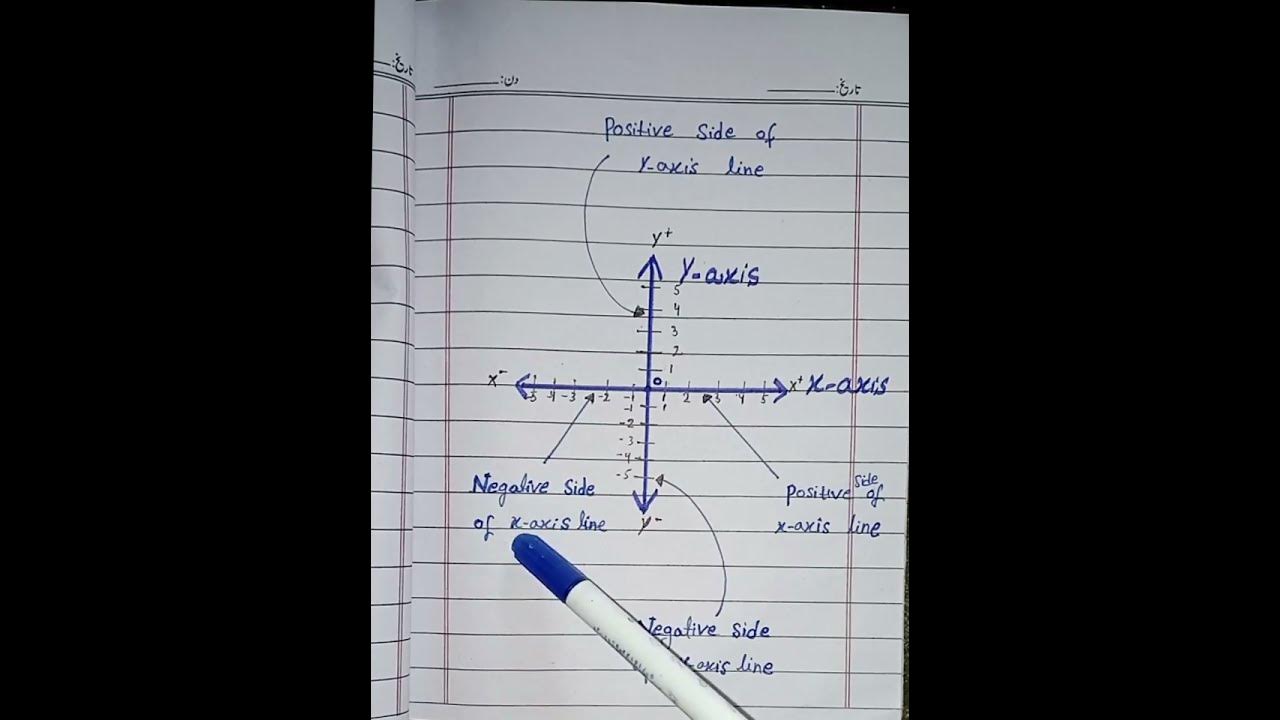 تاریخ:
دن:
تاریخ:
Positive Side of
Y-axis line
y+
Y-axis
5
4
3
2
1
0
x-
x+ X-axis
-5 -4 -3 -2 -1 1 2 3 4 5
-1 1
-2
-3
-4
-5
y-
Negative Side
of x-axis line
Positive Side of
x-axis line
Negative Side
-axis line